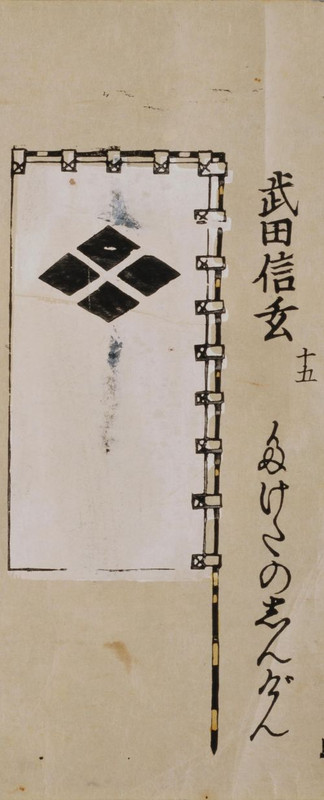 武田信玄
十五
たけたの志んげん